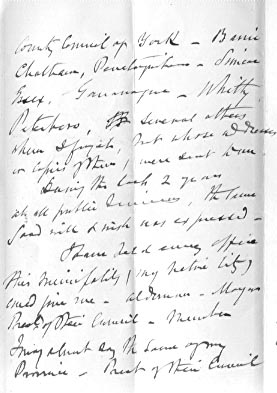 County Council of York - Barrie
Chatham, Penetanguishene - Simcoe
Essex, Gananoque - Whitby
Peterboro, & several others
whom I forget, but whose addresses
or copies of them, were sent down
During the last 2 years
at all public the same
Good will & wish was expressed -
I have held every office
this Municipality, my native City
could give me - Alderman - Mayor
Presdt of their Council - Member
I may almost say the same of my
Province - Presdt of their Council